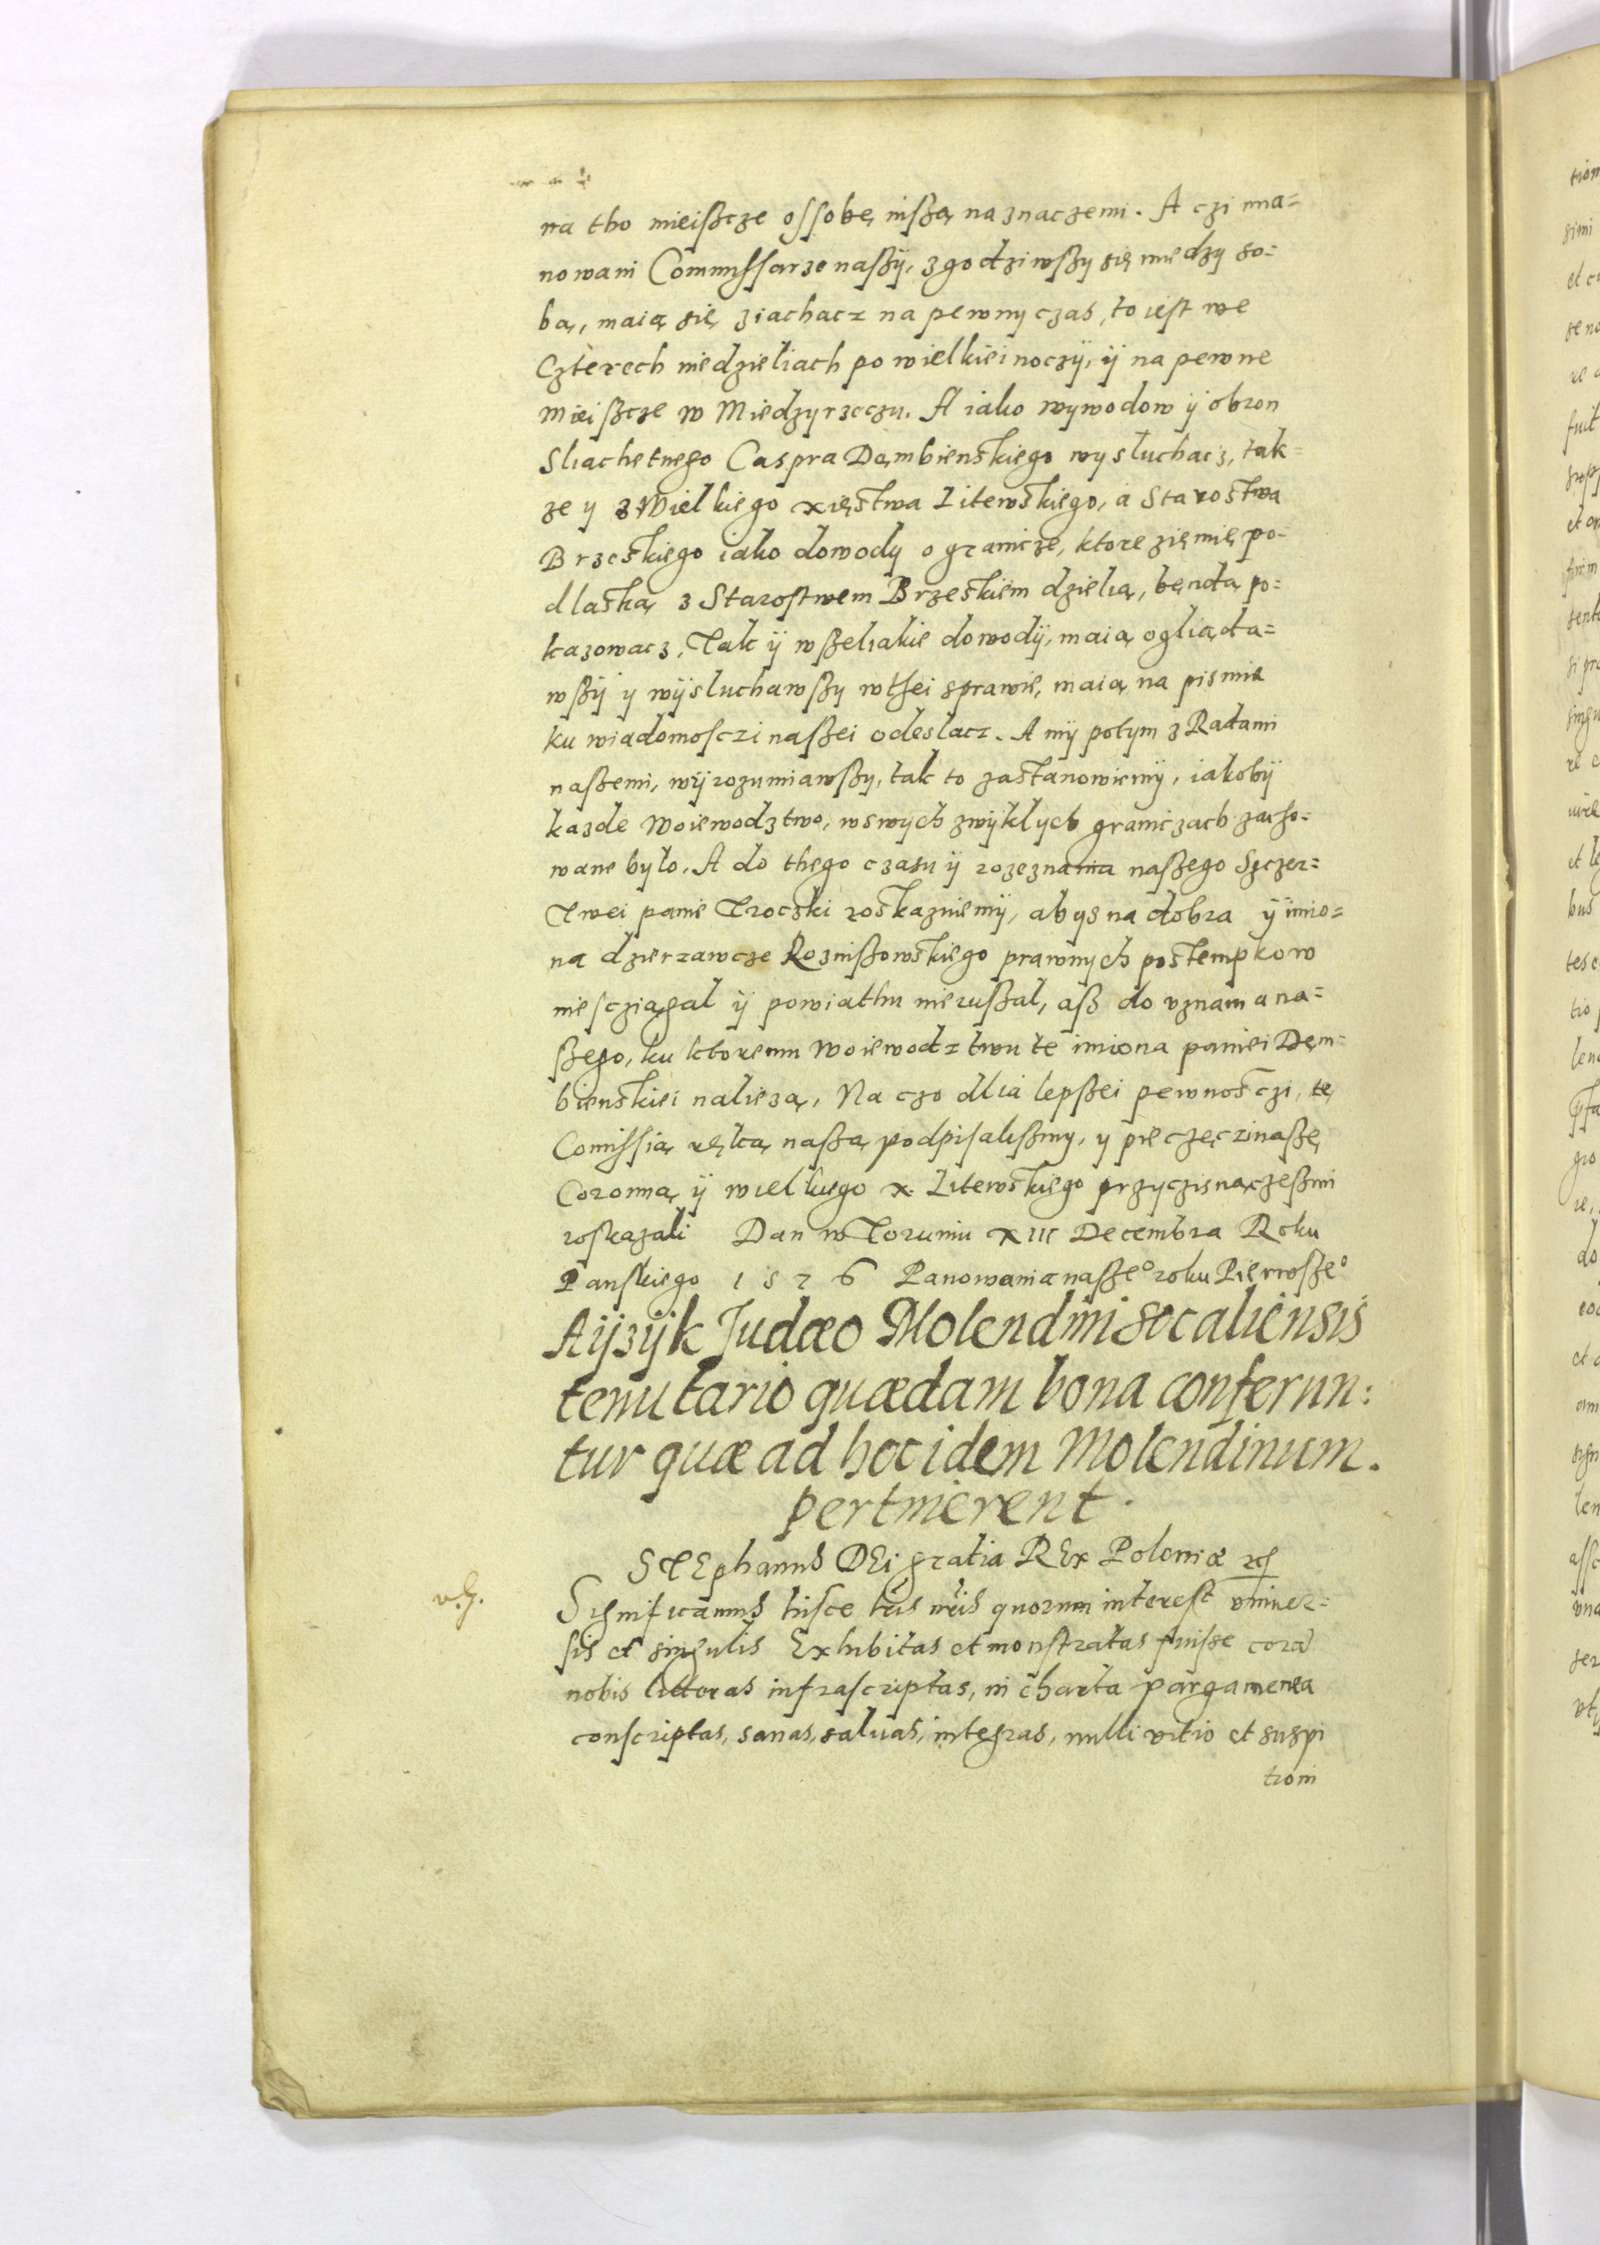 na tho mieißcze ossobę inßą naznaczemi. A czi mia=
nowani Commissarze naßÿ, zgodziwßy się miedzy so=
bą, maią się ziachacz na pewny czas, to iest we
Czterech niedzieliach po wielkiei noczÿ, ÿ na pewne
mieißcze w Miedzyrzeczu. A iako wywodow ÿ obron
Sliachetnego Caspra Dąmbienskiego wysłuchacz, tak=
ze y z Wielkiego xięstwa Litewskiego, á Starostwa
Brzeskiego iako dowody o granicze, ktore ziemię po=
dlaską z Starostwem Brzeskiem dzielią, bęndą po=
kazowacz, Tak ÿ wßeliakie dowodÿ, maią oglią da=
wßÿ y wÿsluchawßy w thei sprawie, maią na pismie
ku wiadomosczi naßei odeslacz. A mÿ potym z Radami
naßemi, wÿrozumiawßy, tak to zastanowiemÿ, iakobÿ
kazde Woiewodztwo, w swych zwÿklych graniczach zacho=
wane bylo. A do thego czasu ÿ rozeznania naßego Sczer=
Twei panie Troczki roskazuiemÿ, abys na dobra ÿ imio=
na dzierzawcze Roznißowskiego prawnych postempkow
niesciągal ÿ powiathu nierußal, aß do vznania na=
ßego, ku ktoremu Woiewodztwu te imiona paniei Dęm=
bienskiei nalieżą, Na czo dlia lepßei pewnosczi, tę
Comissią ręką naßą podpisalißmy, y pieczęczi naßę
Coronną ÿ wielkiego x. Litewskiego przyczisnącześmi
roskazali Dan w Toruniu XIII Decembra Roku
Panskiego 1576 Panowania naßeº roku Pierwßeº
Aÿzÿk Judæo Molendini socaliensis
tenutario quædam bona conferun:
tur quæ ad hoc idem Molendinum.
pertinerent.
STEphanus DEi gratia REx Poloniæ
Significamus hisce lris nris quorum interest vniuer=
sis et singulis Exhibitas et monstratas fuisse corā
nobis litteras infrascriptas, in charta pargamenea
conscriptas, sanas, saluas, integras, nulli vitio et suspi
tioni